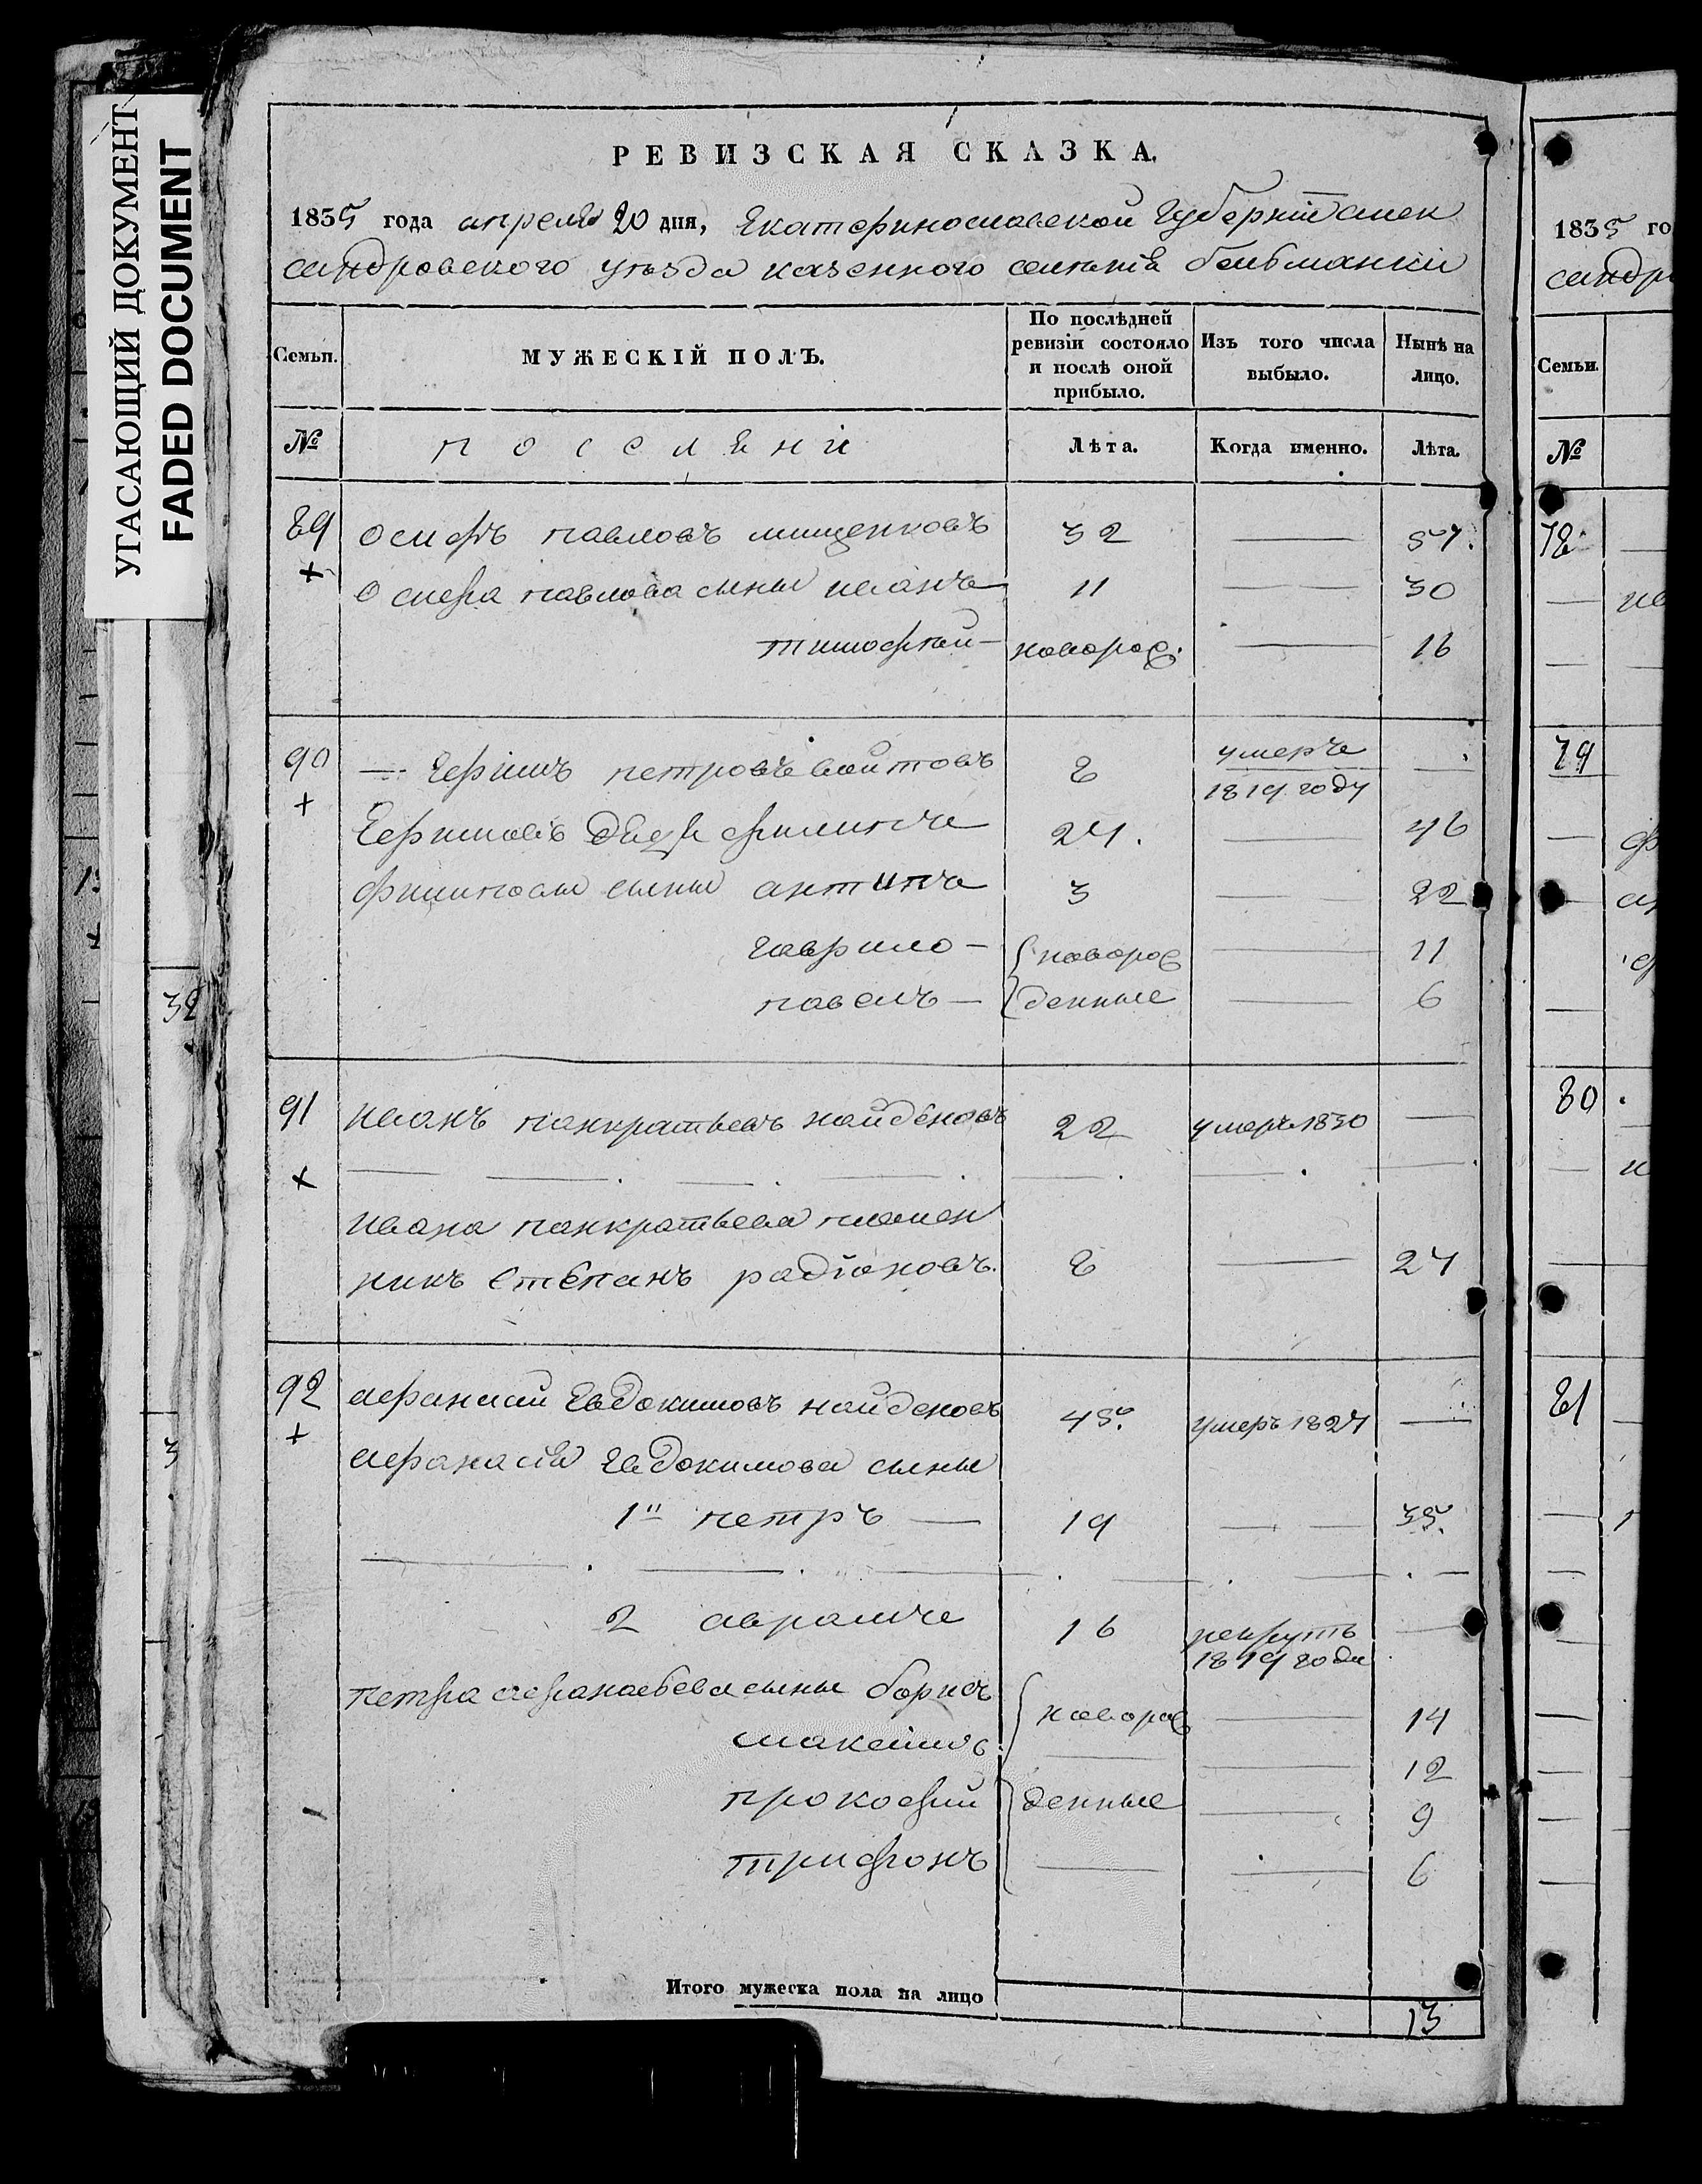 УГАСАЮЩИЙ ДОКУМЕНТ
FADED DOCUMENT
РЕВИЗСКАЯ СКАЗКА.
1835 года апреля 20 дня, Екатеринославской Губерніи Алек
сандровского уѣзда казенного селенія белманки
Семьи. МУЖЕСКІЙ ПОЛЪ. По послѣдней ревизіи состояло и послѣ оной прибыло. Изъ того числа выбыло. Нынѣ на лицо.
№ поселяне Лѣта. Когда именно. Лѣта.
89 Осифъ павловъ мищенковъ 32 — 51.
Осифа павлова сыны иванъ 11 — 30
тимофѣй — новорож. — 16
90 — Ефимъ петровъ воитовъ умеръ 1819 году —
Ефимовъ дядя филипъ 27. — 46
филиповы сыны антипъ 3 — 22
гаврило — новорож — 11
павелъ — денные — 6
91 иванъ панкратьевъ найденовъ 22 умеръ 1830 —
ивана панкратьева племен
никъ Степанъ радіоновъ. 8 — 27
92 афанасий Евдокимовъ найденовъ 45. умеръ 1827 —
афанасія Евдокимова сыны
1й петръ — 19 — 35.
2 аврамъ 16 рекрутъ 1819 года —
петра афанасьева сыны борисъ новорож — 14
максимъ — — 12
прокофий денные — 9
трифонъ — — 6
Итого мужеска пола на лицо 13
1835 го
сандр
Семьи.
№
78
79
80
81